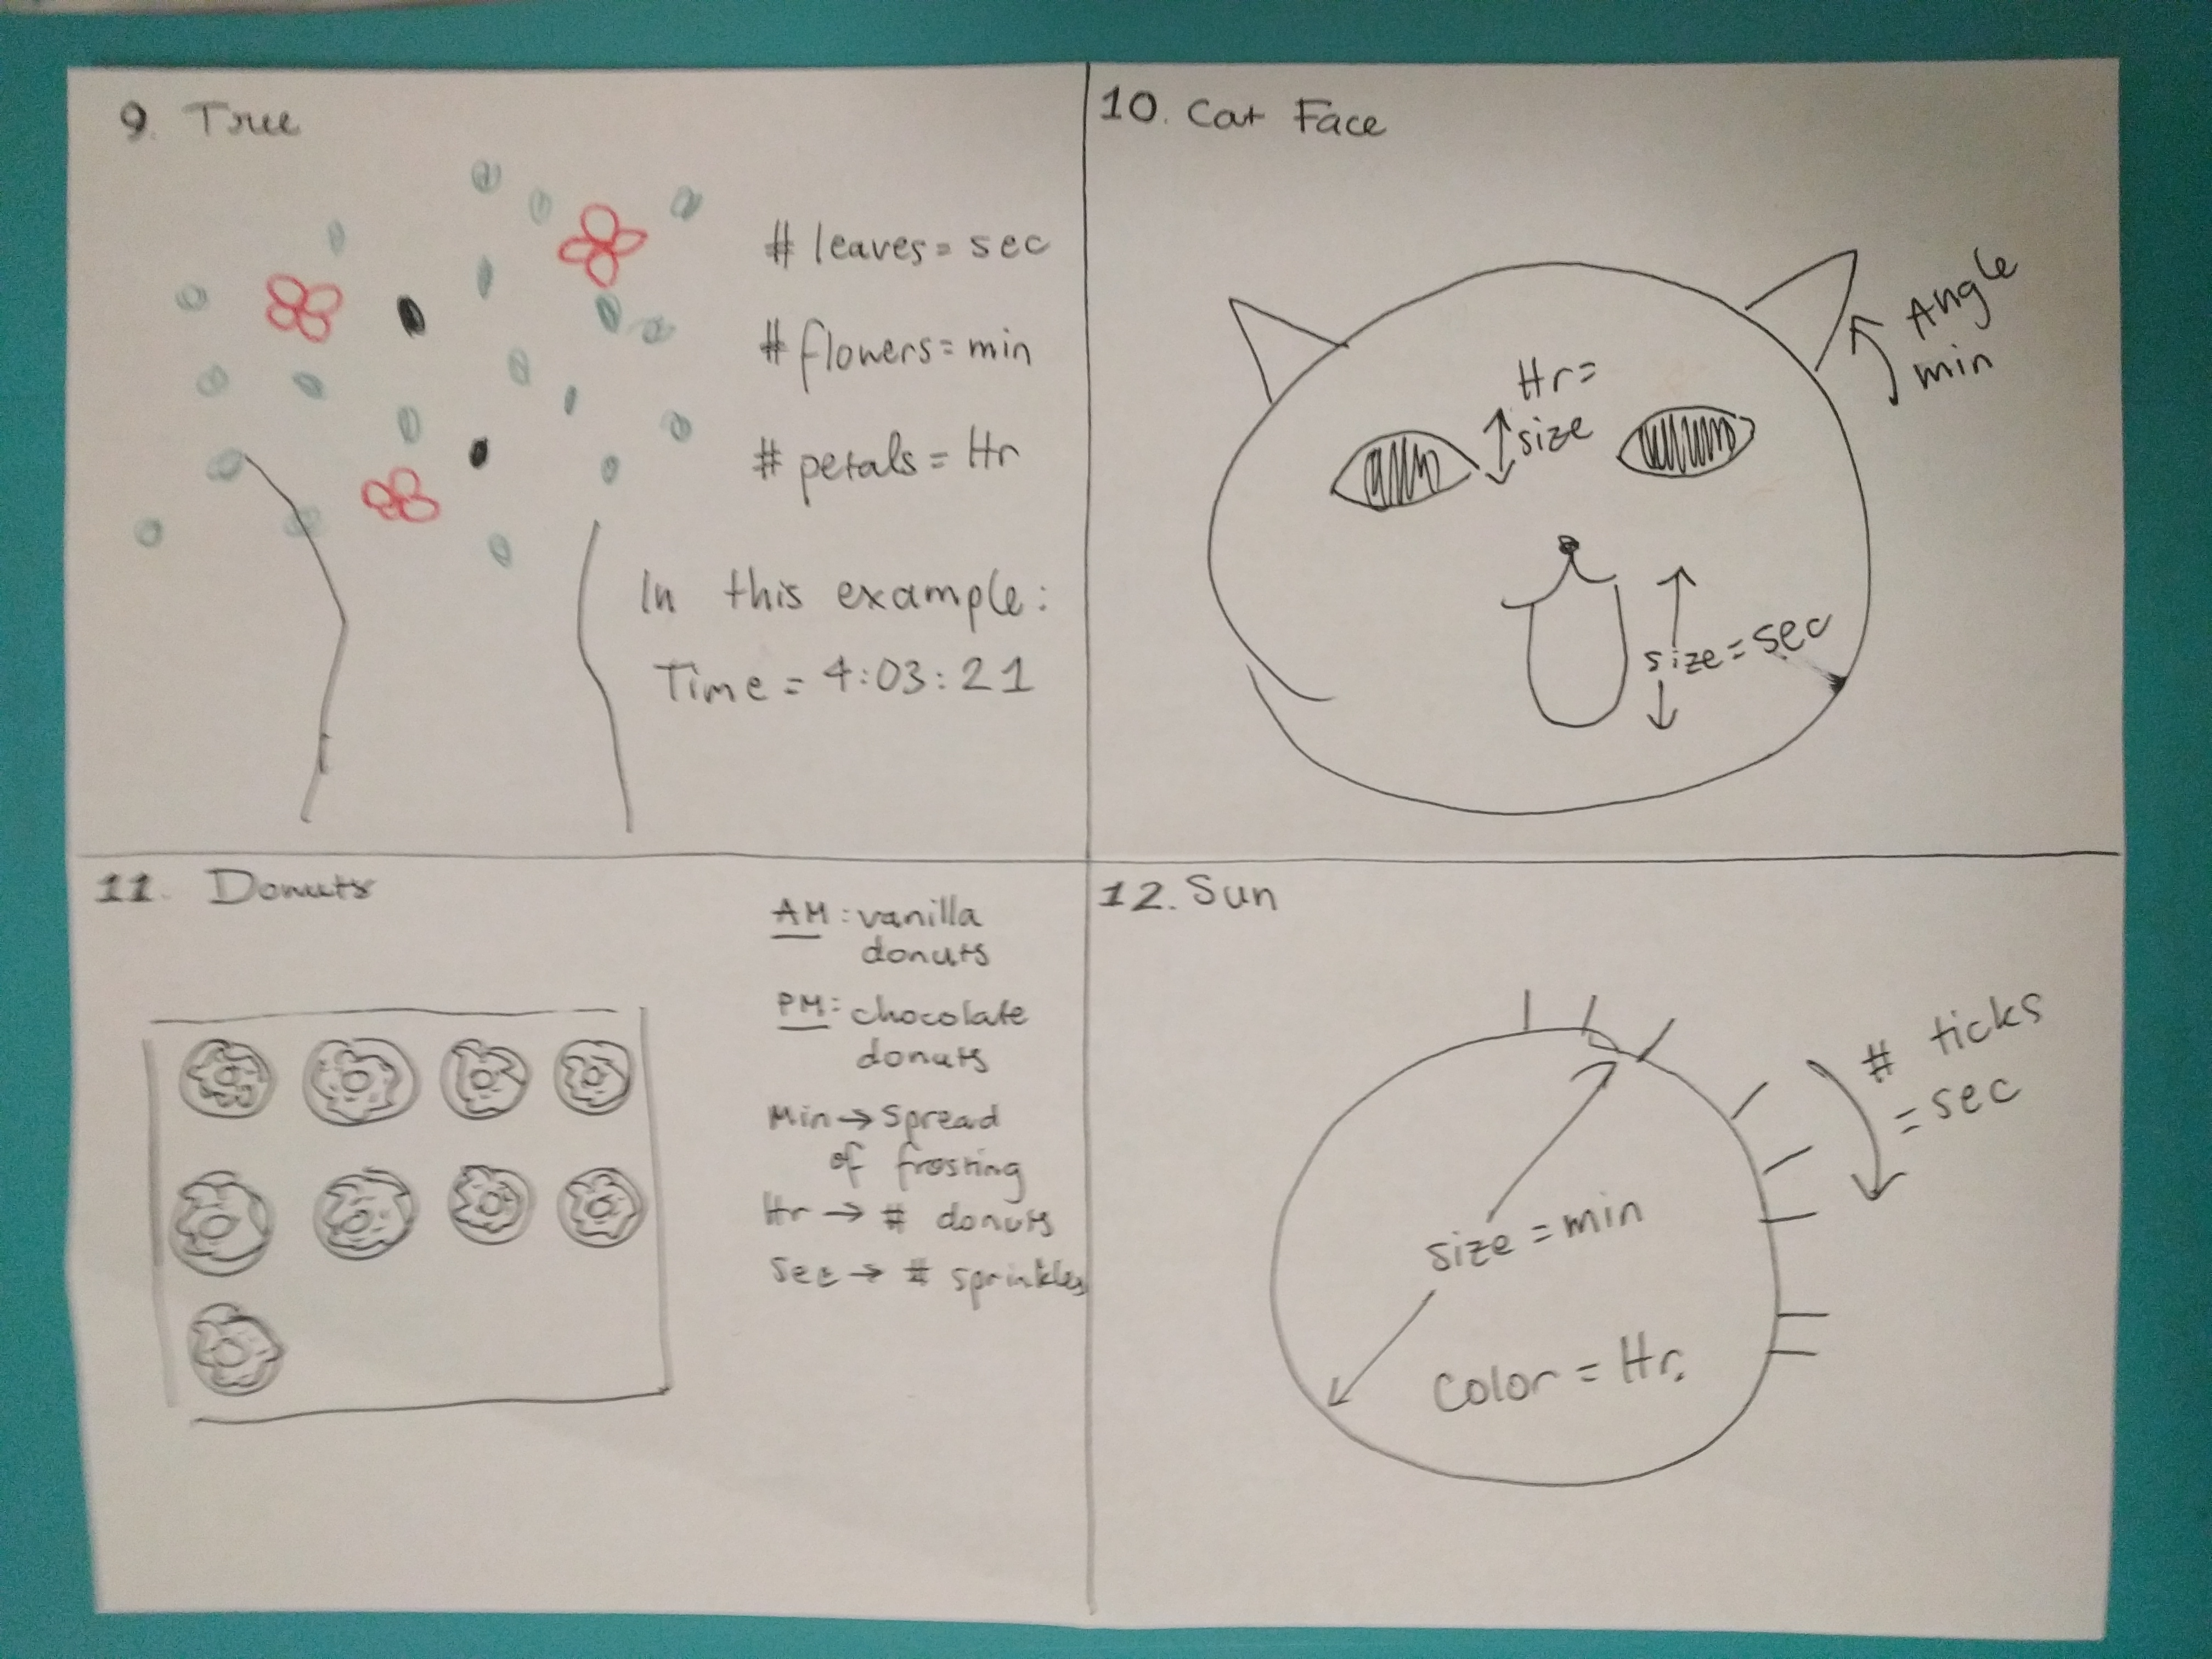 9. Tree
# leaves = sec
# flowers = min
# petals = Hr
In this example:
Time = 4:03:21
10. Cat Face
Angle
min
Hr =
size
size = sec
11. Donuts
AM: vanilla
donuts
PM: chocolate
donuts
Min → Spread
of frosting
Hr → # donuts
Sec → # sprinkles
12. Sun
# ticks
= sec
size = min
Color = Hr.